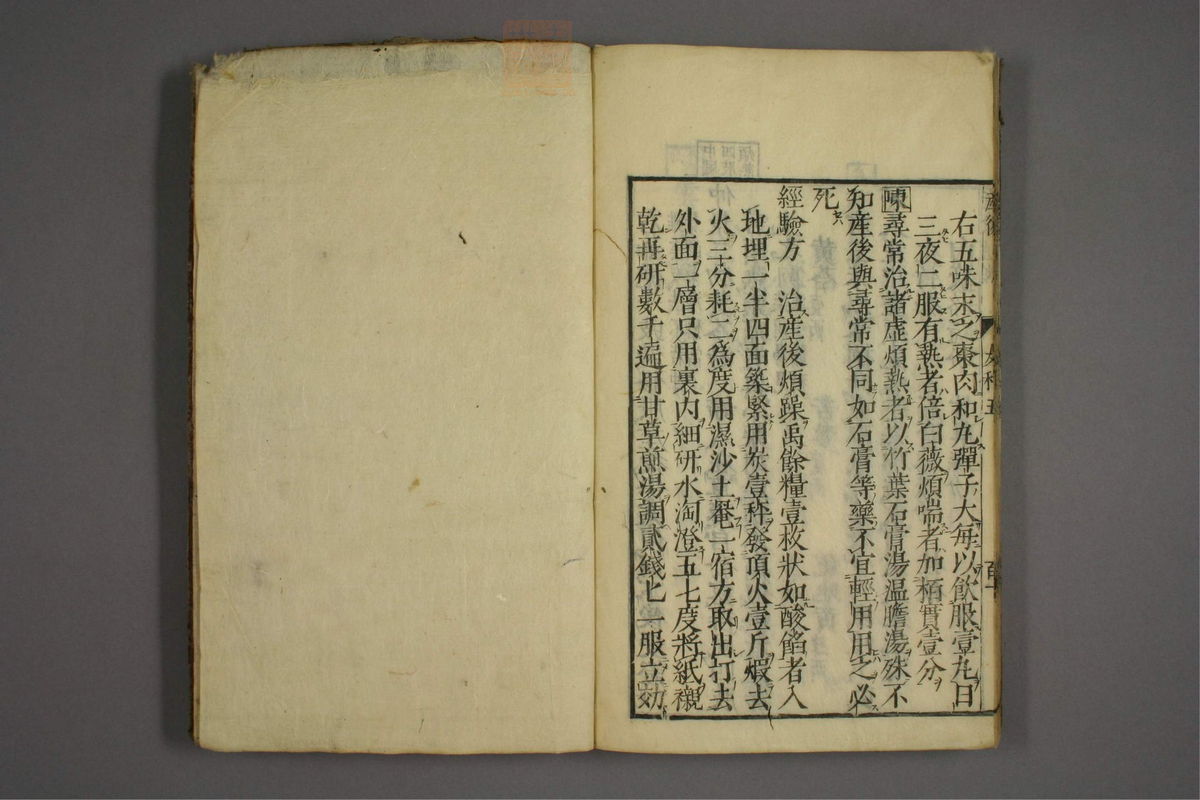 右五味末之棗肉和丸彈子大每以飲服壹丸日
三夜二服有熱者倍白薇煩喘者加栢實壹分
陳尋常治諸虛煩熱者以竹葉石膏湯温膽湯殊不
知産後與尋常不同如石膏等藥不宜輕用用之必
死
經驗方　治産後煩躁禹餘糧壹枚狀如酸餡者入
地埋一半四面築緊用炭壹秤發頂火壹斤煆去
火三分耗二為度用濕沙土罨一宿方取出打去
外面一層只用裏内細研水淘澄五七度將紙襯
乾再研數千遍用甘草煎湯調貳錢匕一服立効